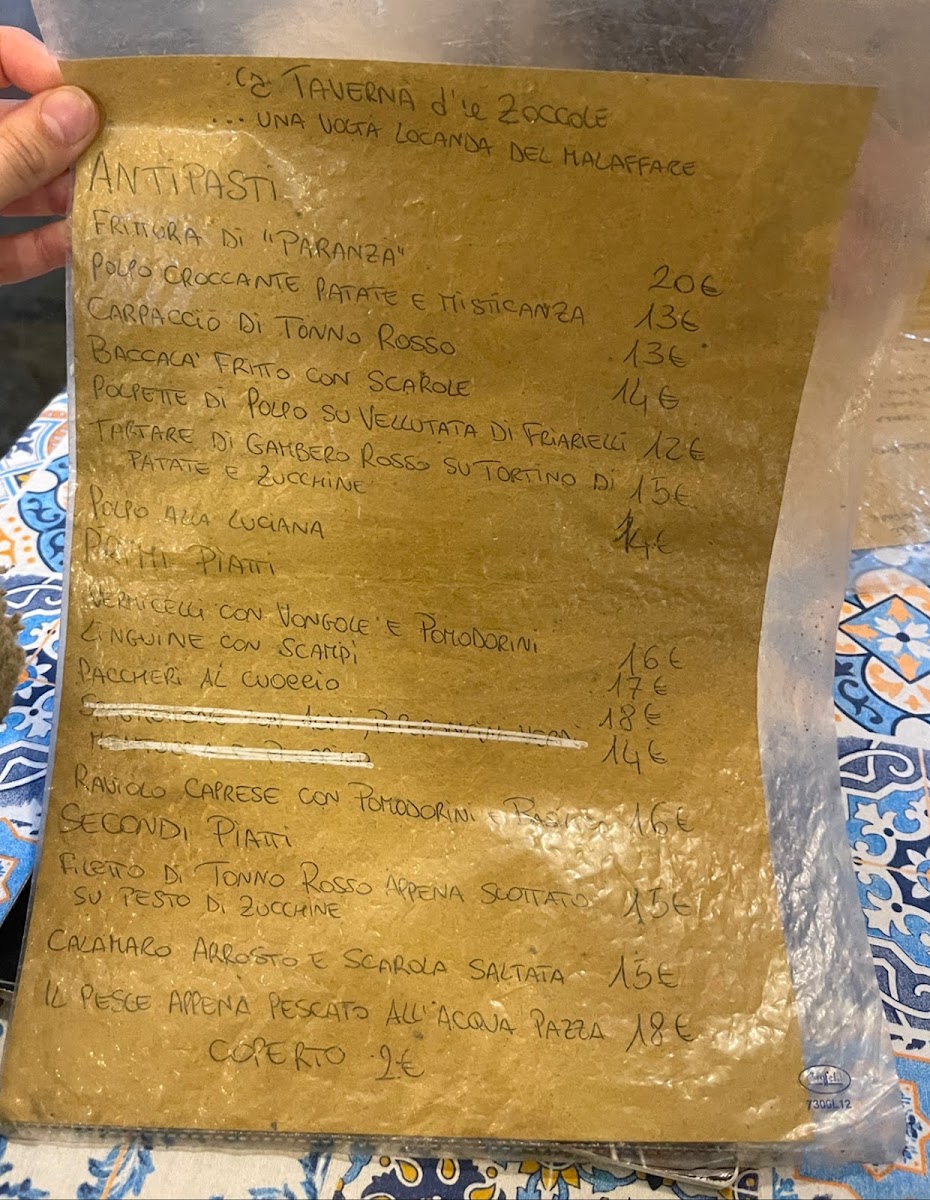 Ca TAVERNA d'le ZOCCOLE
... UNA VOLTA LOCANDA DEL MALAFFARE
ANTIPASTI
FRITTURA DI "PARANZA" 20€
POLPO CROCCANTE PATATE E MISTICANZA 13€
CARPACCIO DI TONNO ROSSO 13€
BACCALA' FRITTO CON SCAROLE 14€
POLPETTE DI POLPO SU VELLUTATA DI FRIARIELLI 12€
TARTARE DI GAMBERO ROSSO SU TORTINO DI 15€
PATATE E ZUCCHINE
POLPO ALLA LUCIANA 14€
PRIMI PIATTI
VERMICELLI CON VONGOLE E POMODORINI 16€
LINGUINE CON SCAMPI 17€
PACCHERI AL CUOCCIO 18€
14€
RAVIOLO CAPRESE CON POMODORINI E BASILICO 16€
SECONDI PIATTI
FILETTO DI TONNO ROSSO APPENA SCOTTATO 15€
SU PESTO DI ZUCCHINE
CALAMARO ARROSTO E SCAROLA SALTATA 15€
IL PESCE APPENA PESCATO ALL'ACQUA PAZZA 18€
COPERTO 2€
730GL12